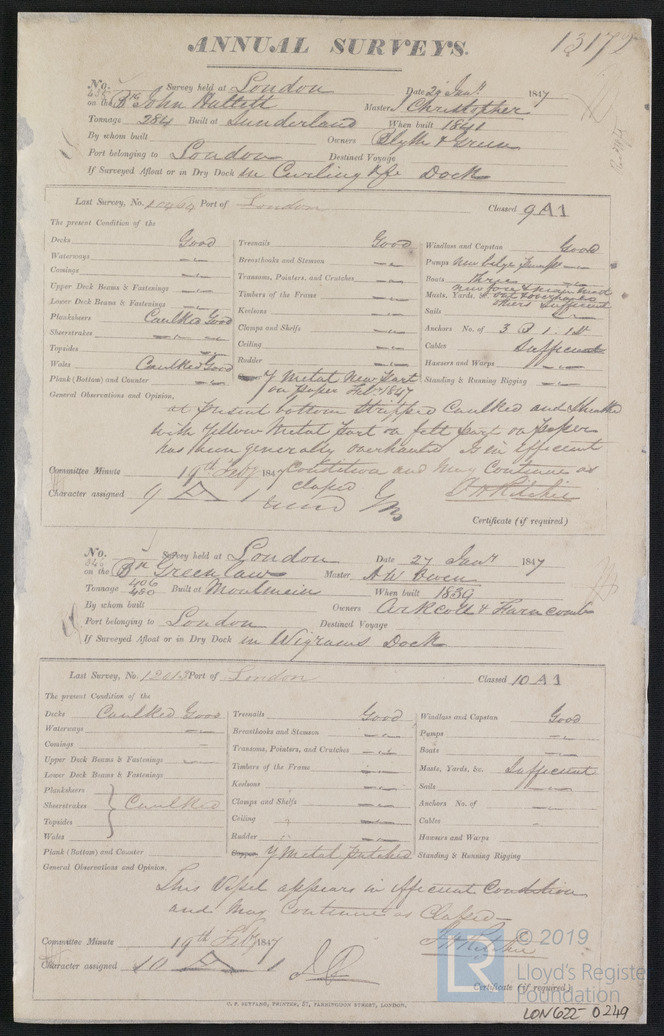 ANNUAL SURVEYS.
No. Survey held at London Date 29 Jany 1847
on the Bk John Hallett Master J Christopher
Tonnage 284 Built at Sunderland When built 1841
By whom built Owners Blyth & Green
Port belonging to London Destined Voyage
If Surveyed Afloat or in Dry Dock in Curling &c Dock
Last Survey, No. Port of London Classed 9 A 1
The present Condition of the
Decks Good Treenails Good Windlass and Capstan Good
Waterways Breasthooks and Stemson Pumps New bilge Pumps
Comings Transoms, Pointers, and Crutches Boats Three
Upper Deck Beams & Fastenings Timbers of the Frame Masts, Yards, &c. New fore & main mast
others sufficient
Lower Deck Beams & Fastenings Keelsons Sails
Planksheers Caulked Good Clamps and Shelfs Anchors No. of 3 B. 1. 1st
Sheerstrakes Ceiling Cables Sufficient
Topsides Rudder Hawsers and Warps
Wales Caulked Good Y Metal New Part Standing & Running Rigging
Plank (Bottom) and Counter on paper 1847
General Observations and Opinion,
at present bottom stripped Caulked and Sheathd
with Yellow Metal part on felt part on paper
has been generally overhauled is in efficient
Committee Minute 19th Feby 1847 Condition and may Continue as
Classed
Character assigned 9 A 1
Certificate (if required)
No. Survey held at London Date 27 Jany 1847
on the Bk Greenlaw Master A W Owen
Tonnage 406 430 Built at Moulmein When built 1839
By whom built Owners Arkcoll & Farncomb
Port belonging to London Destined Voyage
If Surveyed Afloat or in Dry Dock in Wigrams Dock
Last Survey, No. Port of London Classed 10 A 1
The present Condition of the
Decks Caulked Good Treenails Good Windlass and Capstan Good
Waterways Breasthooks and Stemson Pumps
Comings Transoms, Pointers, and Crutches Boats
Upper Deck Beams & Fastenings Timbers of the Frame Masts, Yards, &c. Sufficient
Lower Deck Beams & Fastenings Keelsons Sails
Planksheers Clamps and Shelfs Anchors No. of
Sheerstrakes Caulked Ceiling Cables
Topsides Rudder Hawsers and Warps
Wales Copper Y Metal patched Standing & Running Rigging
Plank (Bottom) and Counter
General Observations and Opinion,
This Vessel appears in efficient Condition
and may Continue as Classed
Committee Minute 19th Feby 1847
Character assigned 10 A 1
Certificate (if required)
© 2019
Lloyd's Register
Foundation
LON622-0249